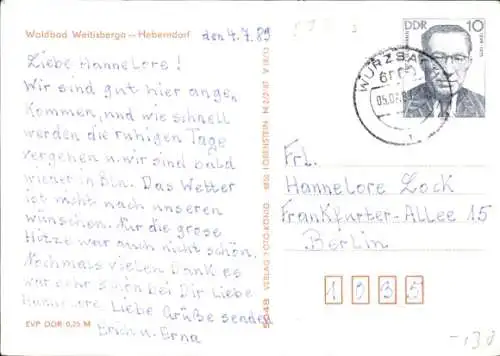 Waldbad Weitisberga - Heberndorf
den 4.7.89
Liebe Hannelore!
Wir sind gut hier ange,
kommen, und wie schnell
werden die ruhigen Tage
vergehen u. wir sind bald
wieder in Bln. Das Wetter
ist nicht nach unseren
wünschen. Nur die grose
Hitze war auch nicht schön.
Nochmals vielen Dank es
war sehr schön bei Dir Liebe
Hannelore. Liebe Grüße senden
Erich u. Erna
EVP DDR 0,25 M
VERLAG FOTO-KÖNIG
DDR 10
WURZBA
05.07.89
Frl.
Hannelore Zock
Frankfurter-Allee 15
Berlin
1035